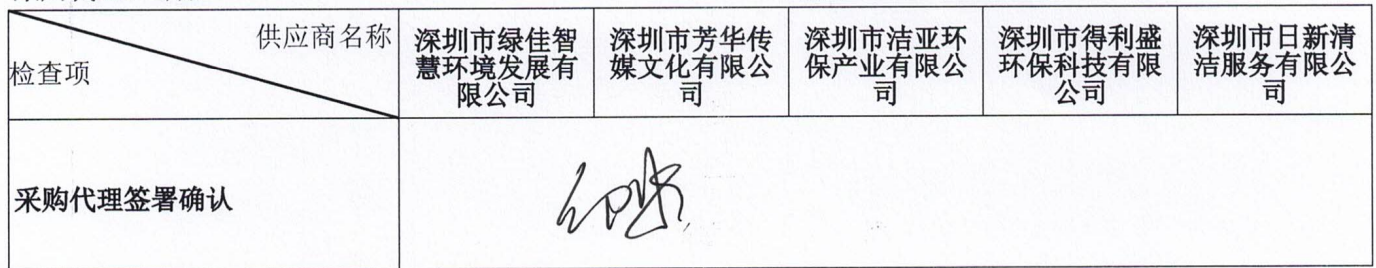 供应商名称
检查项
深圳市绿佳智
慧环境发展有
限公司
深圳市芳华传
媒文化有限公
司
深圳市洁亚环
保产业有限公
司
深圳市得利盛
环保科技有限
公司
深圳市日新清
洁服务有限公
司
采购代理签署确认